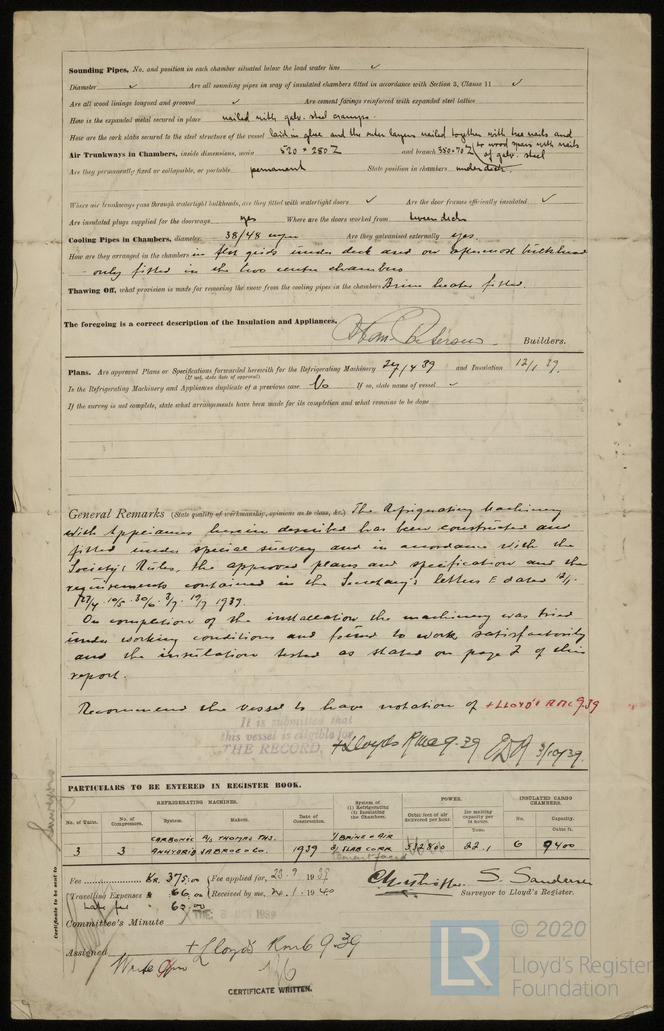 Sounding Pipes, No. and position in each chamber situated below the load water line ✓
Diameter ✓ Are all sounding pipes in way of insulated chambers fitted in accordance with Section 3, Clause 11 ✓
Are all wood linings tongued and grooved ✓ Are cement facings reinforced with expanded steel lattice
How is the expanded metal secured in place nailed with galv. steel cramps.
How are the cork slabs secured to the steel structure of the vessel laid in glue and the outer layers nailed together with tree nails and
to wood spars with nails
Air Trunkways in Chambers, inside dimensions, main 520 × 280 and branch 350 × 70 of galv. steel
Are they permanently fixed or collapsible, or portable permanent State position in chambers under deck.
Where air trunkways pass through watertight bulkheads, are they fitted with watertight doors ✓ Are the door frames efficiently insulated ✓
Are insulated plugs supplied for the doorways yes Where are the doors worked from tweendecks
Cooling Pipes in Chambers, diameter 38/48 Are they galvanised externally yes.
How are they arranged in the chambers in flat grids under deck and on bulkhead
- only fitted in the two center chambers
Thawing Off, what provision is made for removing the snow from the cooling pipes in the chambers Brine heater fitted.
The foregoing is a correct description of the Insulation and Appliances.
Builders.
Plans. Are approved Plans or Specifications forwarded herewith for the Refrigerating Machinery 27/4 39 and Insulation 12/1 39.
(If not, state date of approval)
Is the Refrigerating Machinery and Appliances duplicate of a previous case No If so, state name of vessel ✓
If the survey is not complete, state what arrangements have been made for its completion and what remains to be done
General Remarks (State quality of workmanship, opinions as to class, &c.) The Refrigerating Machinery
with Appliances herein described has been constructed and
fitted under special survey and in accordance with the
Society's Rules, the approved plans and specification and the
requirements contained in the Secretary's letters E dated 12/1.
27/4 10/5 30/6 3/7 19/7 1939.
On completion of the installation the machinery was tried
under working conditions and found to work satisfactorily
and the insulation tested as stated on page 2 of this
report.
Recommend the vessel to have notation of +LLOYD'S RMC 9.39
It is submitted that
this vessel is eligible for
THE RECORD. + Lloyds RMC 9.39 3/10/39.
PARTICULARS TO BE ENTERED IN REGISTER BOOK.
REFRIGERATING MACHINES. System of (1) Refrigerating (2) Insulating the Chambers. POWER. INSULATED CARGO CHAMBERS.
No. of Units. No. of Compressors. System. Makers. Date of Construction. Cubic feet of air delivered per hour. Ice melting capacity per 24 hours. No. Capacity.
Tons. Cubic ft.
CARBONIC A/S THOMAS THS. 1/ BRINE & AIR
3 3 ANHYDRID SABROE & CO. 1939 2/ SLAB CORK 532800 22.1 6 9400
Cement faced
Fee Kr. 375.00 Fee applied for, 20.9 1939
Travelling Expenses 66.00 Received by me, 1 1940
Late fee 62.00
S. Sandersen
Surveyor to Lloyd's Register.
Committee's Minute TUE. 3 OCT 1939
Assigned + Lloyd's Rmc 9.39
CERTIFICATE WRITTEN.
Certificate to be sent to Surveyors
LR
© 2020
Lloyd's Register
Foundation